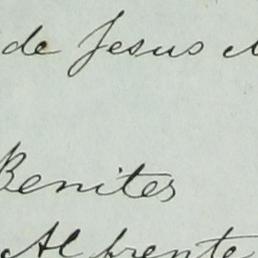 de Jesus
Benites
Al frente